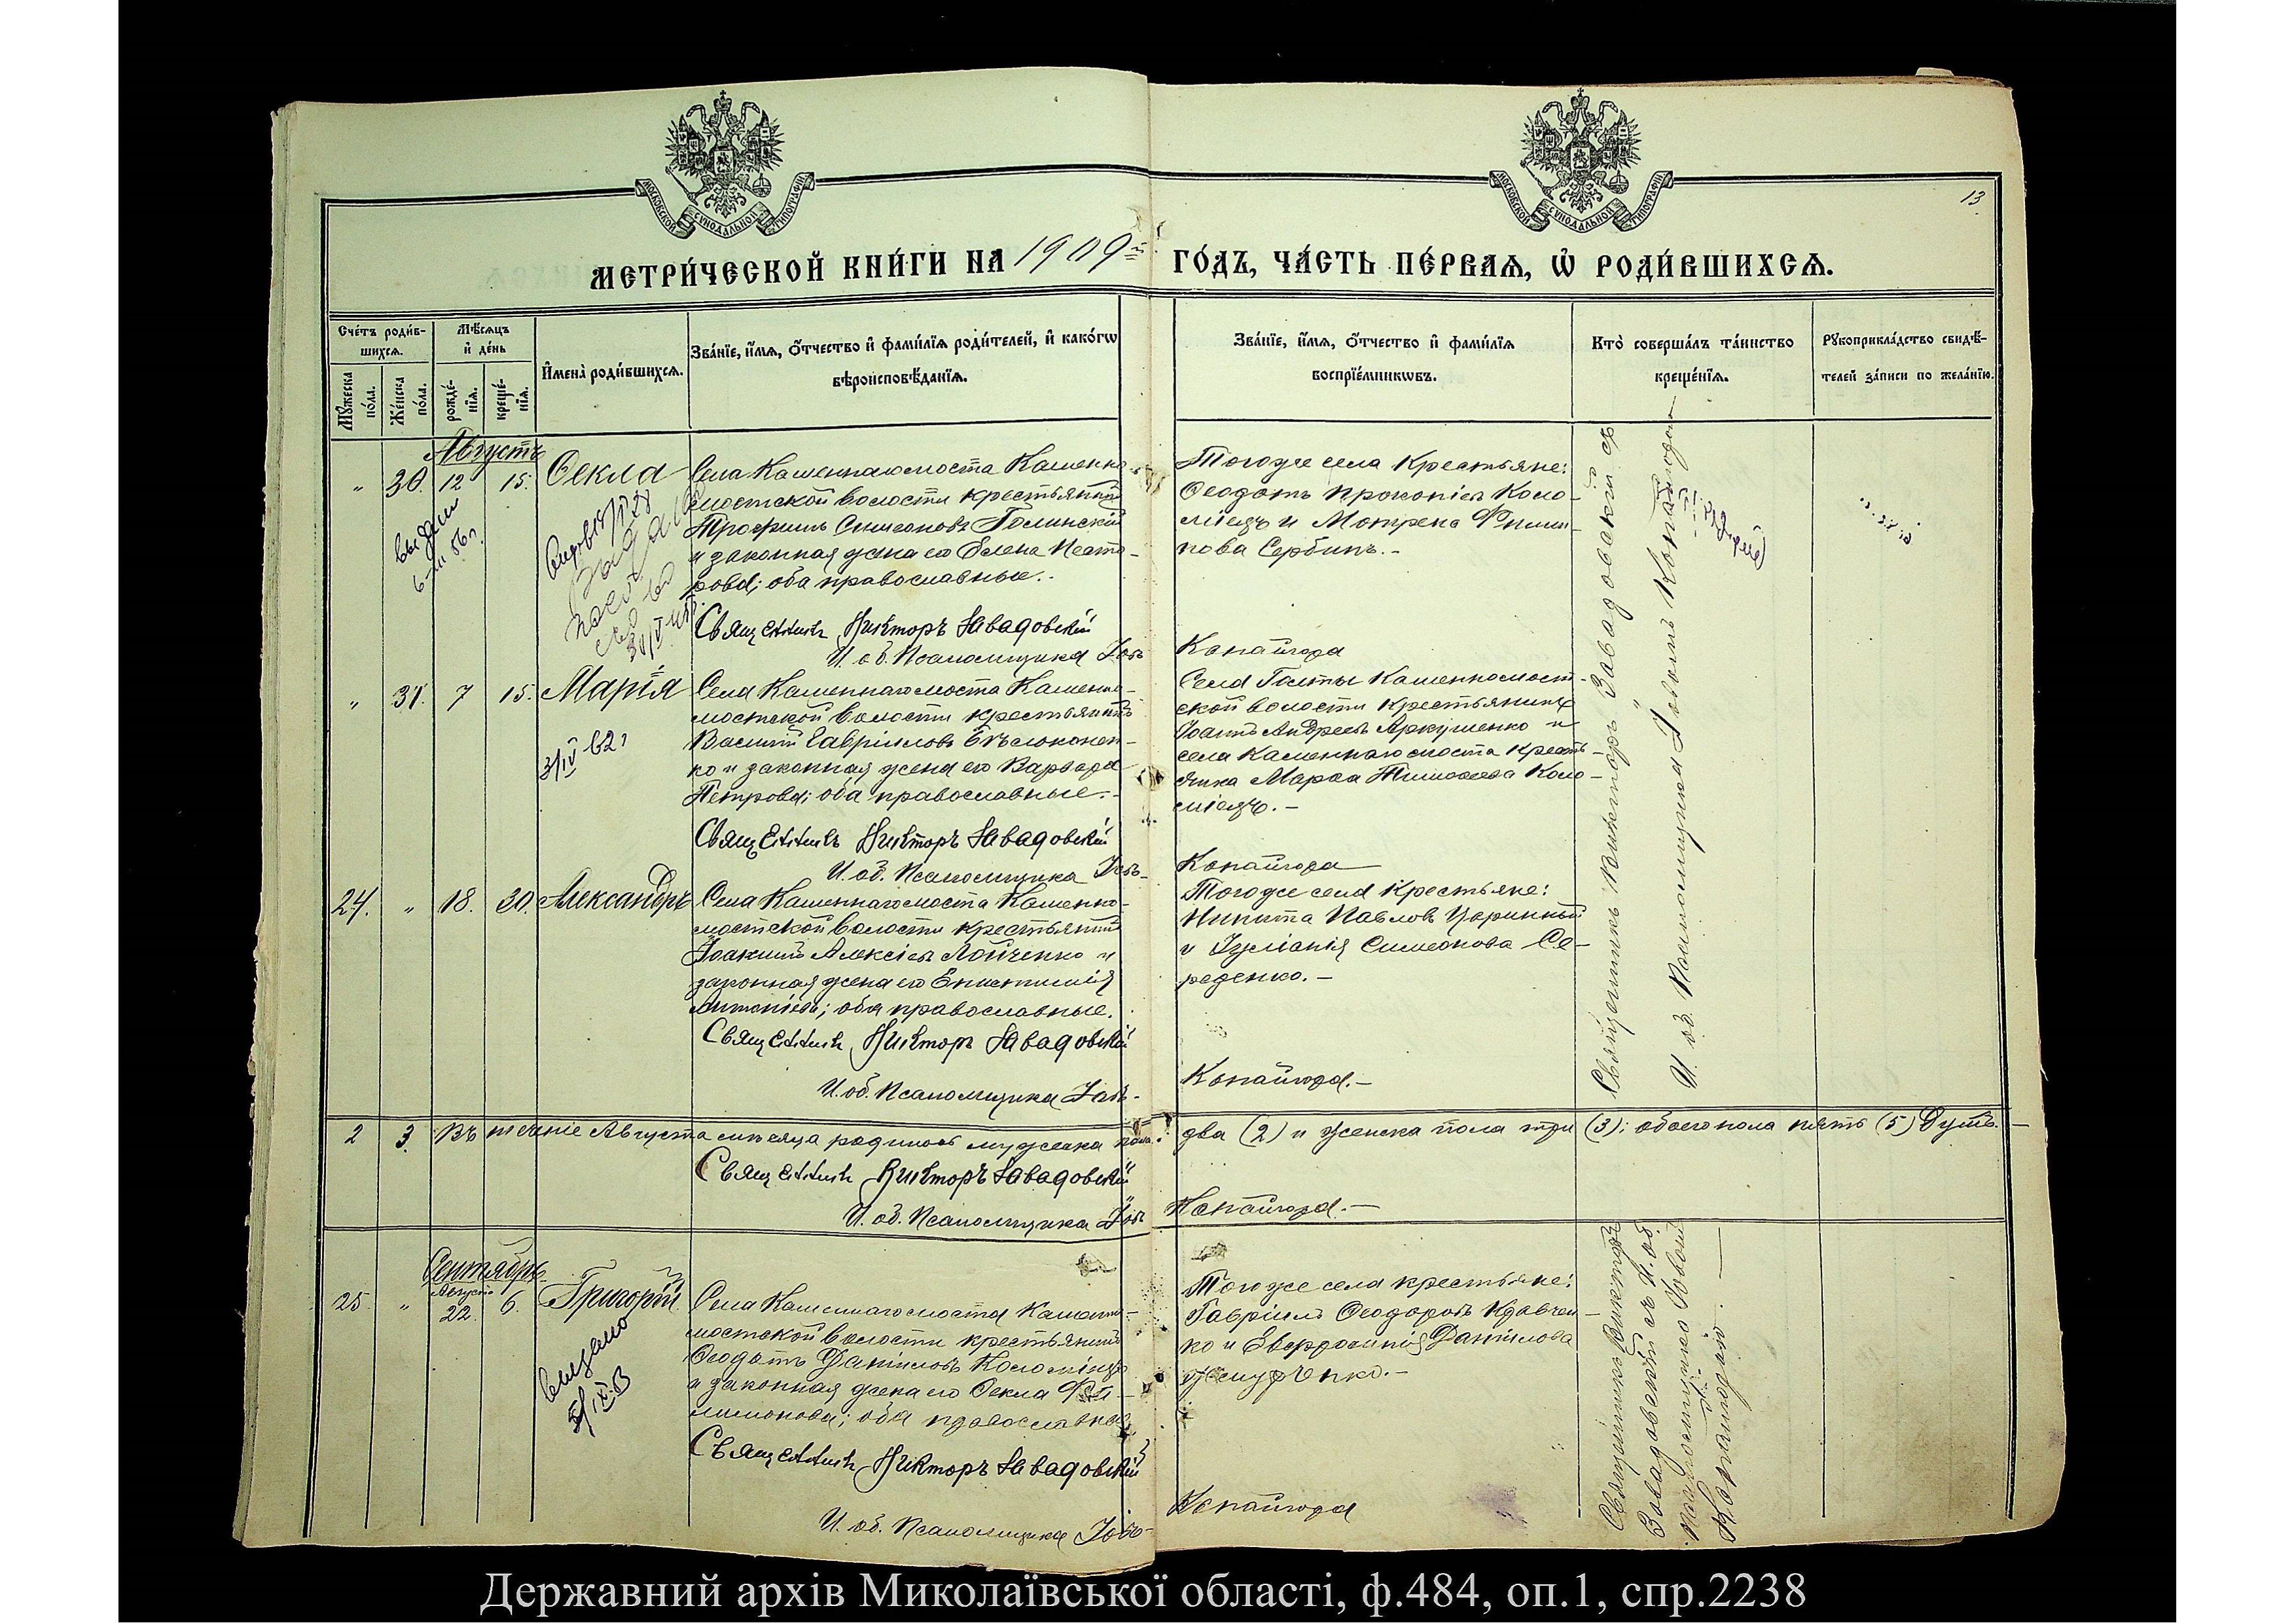 МОСКОВСКОЙ СѴНОДАЛЬНОЙ ТИПОГРАФІИ
МОСКОВСКОЙ СѴНОДАЛЬНОЙ ТИПОГРАФІИ
13
МЕТРИ́ЧЕСКОЙ КНИ́ГИ НА 1909й ГО́ДЪ, ЧА́СТЬ ПЕ́РВАѦ, Ѡ҆ РОДИ́ВШИХСѦ.
Сче́тъ роди́в-
шихсѧ.
Мѣ́сѧцъ
и҆ де́нь
Мꙋ́жеска
по́ла.
Же́нска
по́ла.
рожде́-
нїѧ.
креще́-
нїѧ.
И҆мена̀ роди́вшихсѧ.
Зва́нїе, и҆́мѧ, ѻ҆́тчество и҆ фами́лїѧ роди́телей, и҆ како́гѡ
вѣроисповѣ́данїѧ.
Зва́нїе, и҆́мѧ, ѻ҆́тчество и҆ фами́лїѧ
воспрїе́мникѡвъ.
Кто̀ соверша́лъ та́инство
креще́нїѧ.
Рꙋкоприкла́дство свидѣ́-
телей за́писи по жела́нїю.
Августъ
„ 30. 12 15. Ѳекла
Села Каменнагомоста Каменно-
мостской волости крестьянинъ
Трофимъ Симеоновъ Голинскій
и законная жена его Елена Несто-
рова; оба православные.-
Священникъ Викторъ Завадовскій
И. об. Псаломщика Іовъ
Тогоже села крестьяне:
Ѳеодотъ Прокопіевъ Коло-
міецъ и Мотрена Филип-
пова Сербинъ.-
Копайгора
выдан
6-III 56г.
„ 31. 7 15. Марія
3/IV 62г
Села Каменнагомоста Каменно-
мостской волости крестьянинъ
Василій Гавріиловъ Бѣлоконен-
ко и законная жена его Варвара
Петрова; оба православные.-
Священникъ Викторъ Завадовскій
И. об. Псаломщика Іовъ
Села Голты Каменномост-
ской волости крестьянинъ
Іоаннъ Андреевъ Аркушенко и
села Каменнаго моста кресть-
янка Марѳа Тимоѳеева Коло-
міецъ.-
Копайгора
24. „ 18. 30. Александръ
Села Каменнагомоста Каменно-
мостской волости крестьянинъ
Іоакимъ Алексіевъ Лойченко и
законная жена его Епистимія
Антоніева; оба православные.
Священникъ Викторъ Завадовскій
И. об. Псаломщика Іовъ-
Тогоже села крестьяне:
Никита Павловъ Царинный
и Іуліанія Симеонова Се-
реденко.-
Копайгора.-
Священникъ Викторъ Завадовскій съ
И. об. Псаломщика Іовомъ Копайгорою
2 3. Въ теченіе Августа мѣсяца родилось мужеска пола: два (2) и женска пола три (3); обоего пола пять (5) Душъ.-
Священникъ Викторъ Завадовскій
И. об. Псаломщика Іовъ Копайгора.-
Сентябрь
Августъ
25. „ 22. 6. Григорій
выдано
5/IX
Села Каменнагомоста Каменно-
мостской волости крестьянинъ
Ѳеодотъ Даніиловъ Коломіецъ
и законная жена его Ѳекла Фи-
лимонова; оба православные
Священникъ Викторъ Завадовскій
И. об. Псаломщика Іовъ-
Тогоже села крестьяне:
Гавріилъ Ѳеодоровъ Кравчен-
ко и Евфросинія Даніилова
Копайгора
Священникъ Викторъ
Завадовскій съ И. об.
Псаломщика Іовомъ
Копайгорою.
Державний архів Миколаївської області, ф.484, оп.1, спр.2238